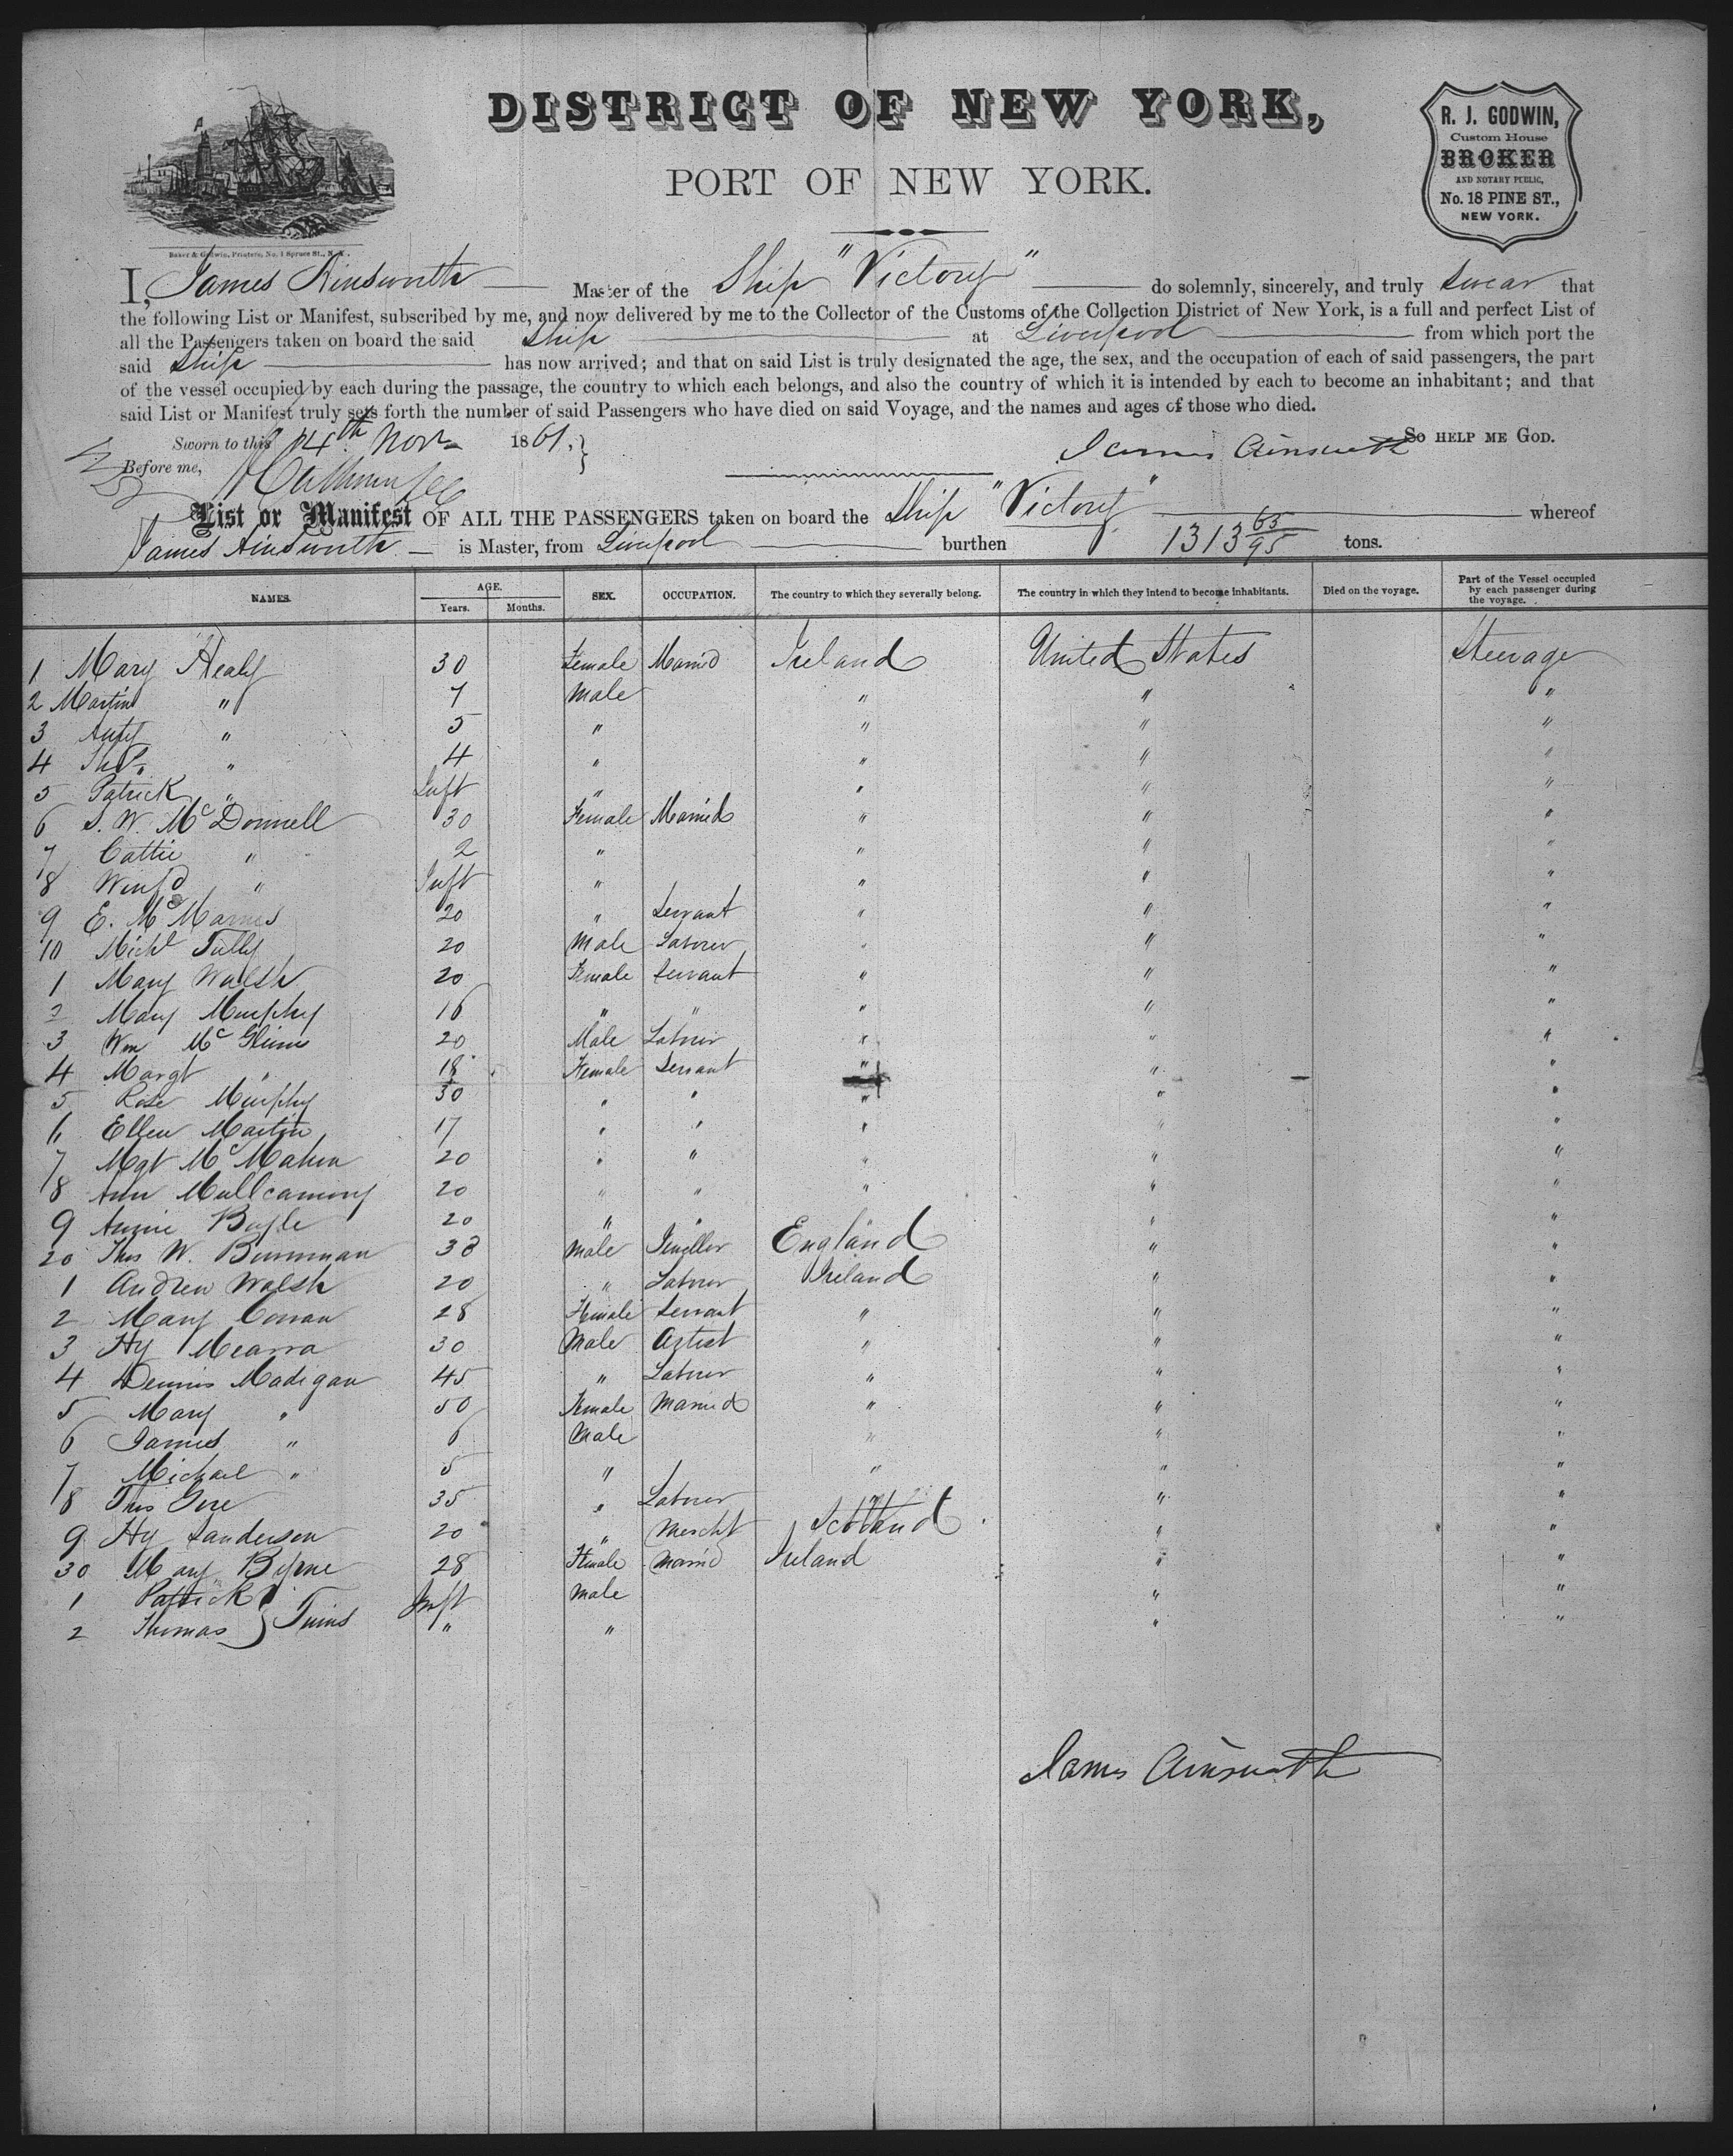 DISTRICT OF NEW YORK,
PORT OF NEW YORK.
R. J. GODWIN,
Custom House
BROKER
AND NOTARY PUBLIC,
No. 18 PINE ST.,
NEW YORK.
Baker & Godwin, Printers, No. 1 Spruce St., N.Y.
I, James Ainsworth Master of the Ship "Victory" do solemnly, sincerely, and truly swear that
the following List or Manifest, subscribed by me, and now delivered by me to the Collector of the Customs of the Collection District of New York, is a full and perfect List of
all the Passengers taken on board the said Ship at Liverpool from which port the
said Ship has now arrived; and that on said List is truly designated the age, the sex, and the occupation of each of said passengers, the part
of the vessel occupied by each during the passage, the country to which each belongs, and also the country of which it is intended by each to become an inhabitant; and that
said List or Manifest truly sets forth the number of said Passengers who have died on said Voyage, and the names and ages of those who died.
Sworn to this 14th Novr 1861. So HELP ME GOD.
James Ainsworth
Before me,
List or Manifest OF ALL THE PASSENGERS taken on board the Ship "Victory" whereof
James Ainsworth is Master, from Liverpool burthen 1313 65/95 tons.
NAMES. AGE. Years. Months. SEX. OCCUPATION. The country to which they severally belong. The country in which they intend to become inhabitants. Died on the voyage. Part of the Vessel occupied by each passenger during the voyage.
1 Mary Healy 30 Female Married Ireland United States Steerage
2 Martin " 7 Male " " "
3 " 5 " " " "
4 " 4 " " " "
5 Patrick " Inft " " " "
6 S. W. McDonnell 30 Female Married " " "
7 Cattie " 2 " " " "
8 Winfd " Inft " " " "
9 E. 20 " Servant " " "
10 Michl Tully 20 Male Laborer " " "
1 Mary Walsh 20 Female Servant " " "
2 Mary Murphy 16 " " " " "
3 Wm McGlinn 20 Male Laborer " " "
4 Margt " 18 Female Servant " " "
5 Rose Murphy 30 " " " " "
6 Ellen Martin 17 " " " " "
7 Mgt McMahon 20 " " " " "
8 Ann 20 " " " " "
9 Annie Boyle 20 " " " " "
20 Thos W. 38 Male Jeweller England " "
1 Andrew Walsh 20 " Laborer Ireland " "
2 Mary Conran 28 Female Servant " " "
3 Hy Meara 30 Male Artist " " "
4 Dennis Madigan 45 " Laborer " " "
5 Mary " 50 Female Married " " "
6 James " 6 Male " " "
7 Michael " 5 " " " "
8 Thos Gore 35 " Laborer " " "
9 Hy Sanderson 20 " Mercht Scotland " "
30 Mary Byrne 28 Female Married Ireland " "
1 Patrick } Twins Inft Male " "
2 Thomas } " " " "
James Ainsworth